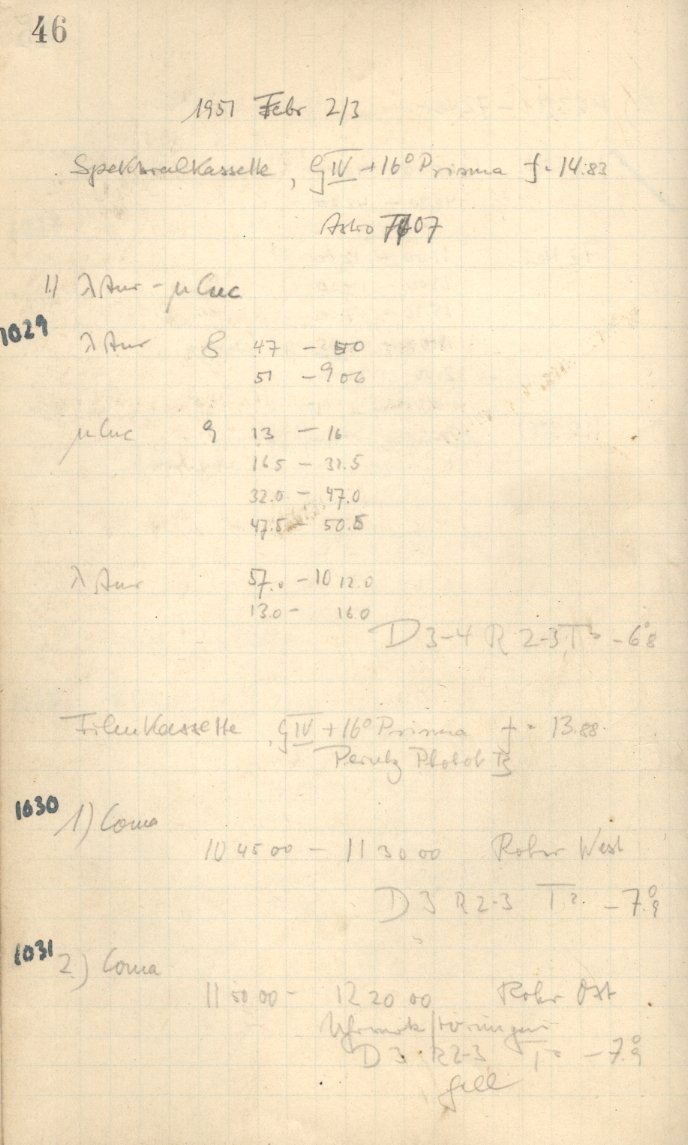 46
1951 Febr 2/3
Spektralkassette, GIV + 16° Prisma f = 14.83
Astro 07
1) λ Aur - μ Cnc
1029 λ Aur 8 47 - 50
51 - 9 06
μ Cnc 9 13 - 16
16.5 - 31.5
32.0 - 47.0
47.5 - 50.5
λ Aur 57.0 - 10 12.0
13.0 - 16.0
D 3-4 R 2-3 T = -6°8
Filmkassette, GIV + 16° Prisma f = 13.88
Perutz
1030 1) Coma
10 45 00 - 11 30 00 Rohr West
D 3 R 2-3 T = -7°9
1031 2) Coma
11 50 00 - 12 20 00 Rohr Ost
Uhrwerkstörungen
D 3 R 2-3 T = -7°9